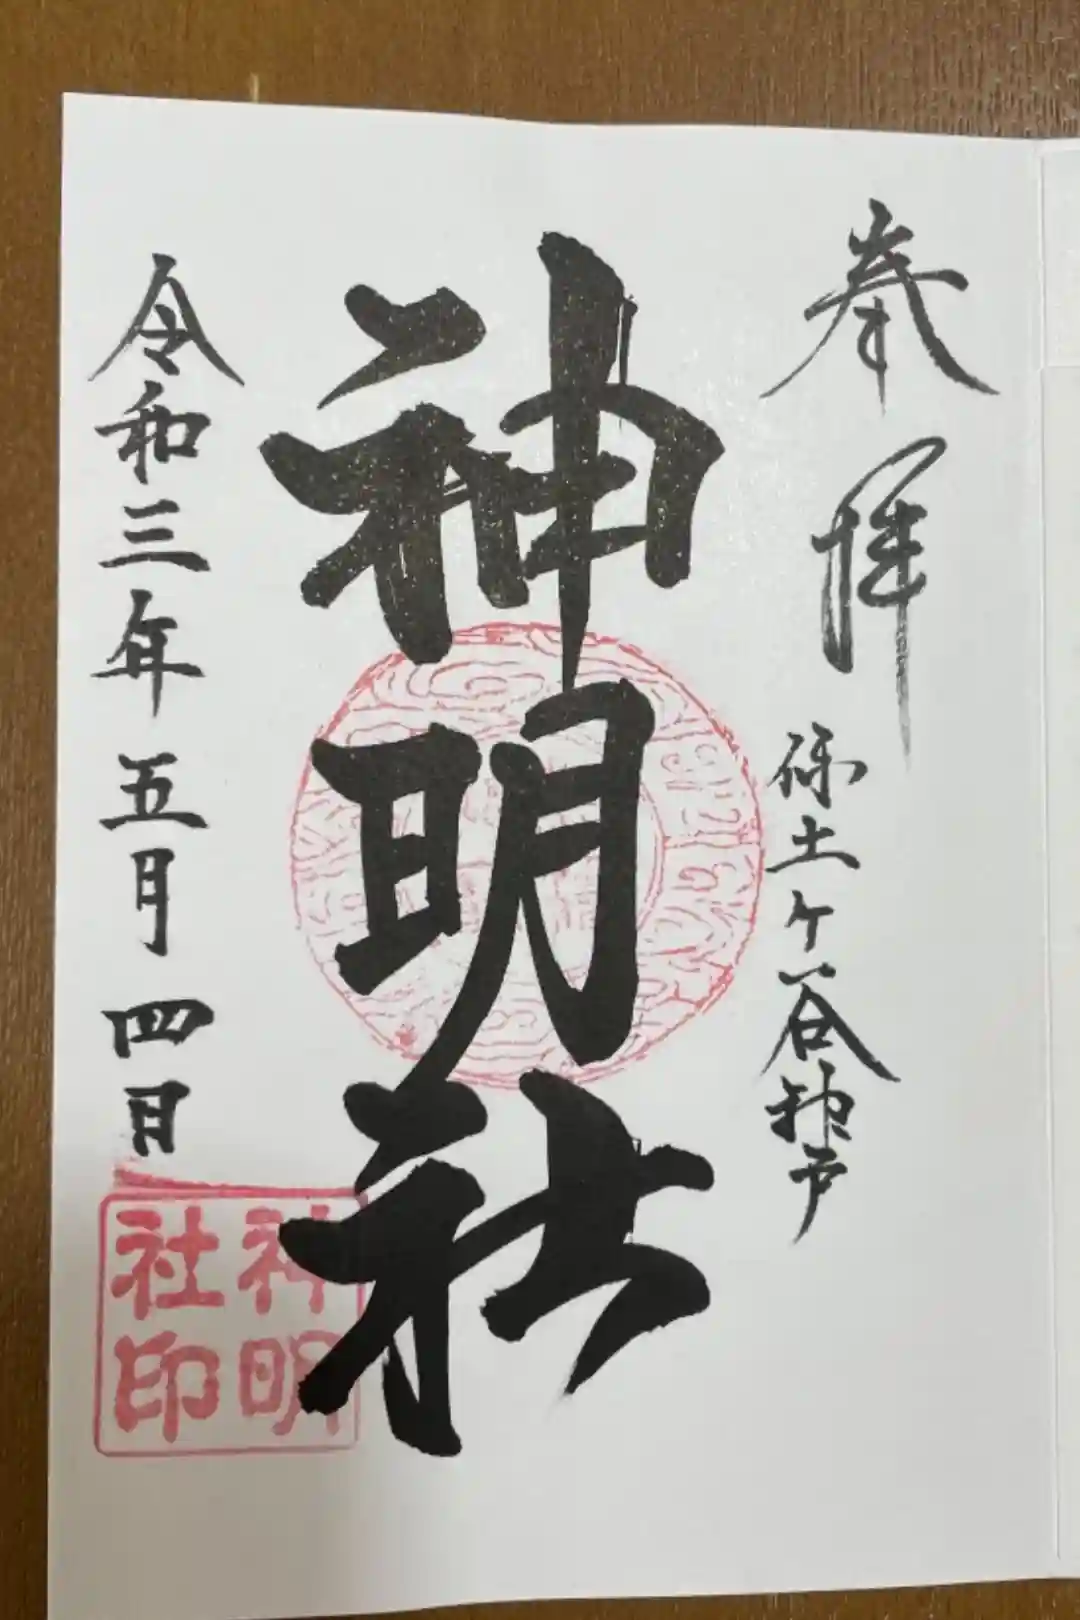 奉拝
程土ケ谷神戸
神明社
令和三年五月四日
神明
社印